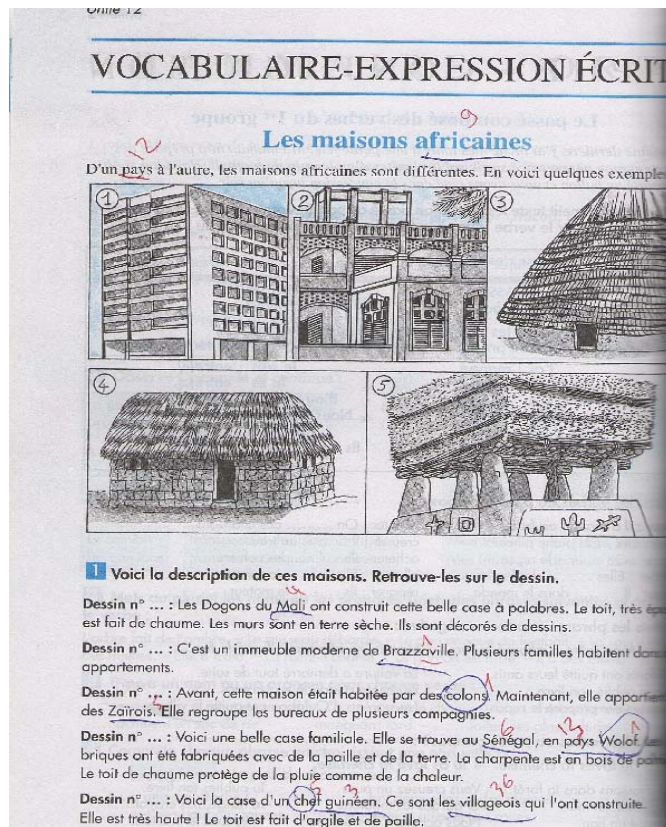 Unité 12
VOCABULAIRE-EXPRESSION ÉCRIT
9
Les maisons africaines
12
D'un pays à l'autre, les maisons africaines sont différentes. En voici quelques exemple
1 2 3
4 5
1 Voici la description de ces maisons. Retrouve-les sur le dessin.
Dessin n° ... : Les Dogons du Mali ont construit cette belle case à palabres. Le toit, très épa
est fait de chaume. Les murs sont en terre sèche. Ils sont décorés de dessins.
1
Dessin n° ... : C'est un immeuble moderne de Brazzaville. Plusieurs familles habitent dans
appartements.
1
Dessin n° ... : Avant, cette maison était habitée par des colons. Maintenant, elle appartien
5
des Zaïrois. Elle regroupe les bureaux de plusieurs compagnies.
6 13 1
Dessin n° ... : Voici une belle case familiale. Elle se trouve au Sénégal, en pays Wolof. Les
briques ont été fabriquées avec de la paille et de la terre. La charpente est en bois de palm
Le toit de chaume protège de la pluie comme de la chaleur.
5 3 36
Dessin n° ... : Voici la case d'un chef guinéen. Ce sont les villageois qui l'ont construite.
Elle est très haute ! Le toit est fait d'argile et de paille.